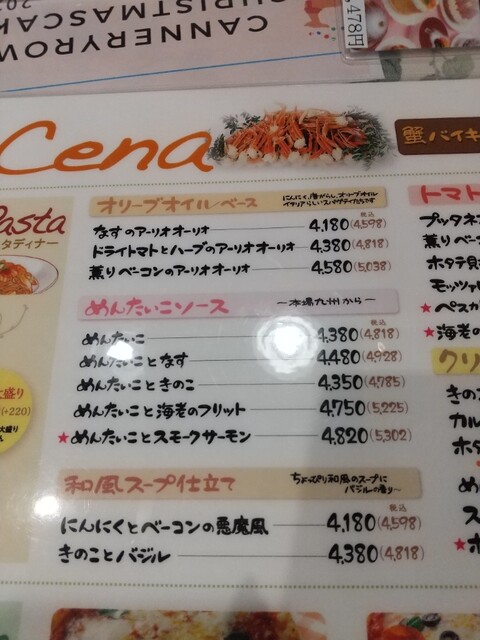 CANNERYROW
CHRISTMASCAK
,478円
Cena
蟹バイキ
Pasta
タディナー
大盛り
(+220)
大盛り
オリーブオイルベース
にんにく、唐がらし、オリーブオイル
イタリアらしいスパゲティたちです
税込
なすのアーリオオーリオ 4,180(4,598)
ドライトマトとハーブのアーリオオーリオ 4,380(4,818)
薫りベーコンのアーリオオーリオ 4,580(5,038)
めんたいこソース
〜本場九州から〜
税込
めんたいこ 4,380(4,818)
めんたいことなす 4,480(4,928)
めんたいこときのこ 4,350(4,785)
めんたいこと海老のフリット 4,750(5,225)
★めんたいことスモークサーモン 4,820(5,302)
和風スープ仕立て
ちょっぴり和風のスープに
バジルの香り〜
税込
にんにくとベーコンの悪魔風 4,180(4,598)
きのことバジル 4,380(4,818)
トマト
プッタネ
薫りベー
ホタテ貝
モッツァレ
★ペスカ
★海老の
クリ
きのこ
カル
ホタ
め
ス
★ホ